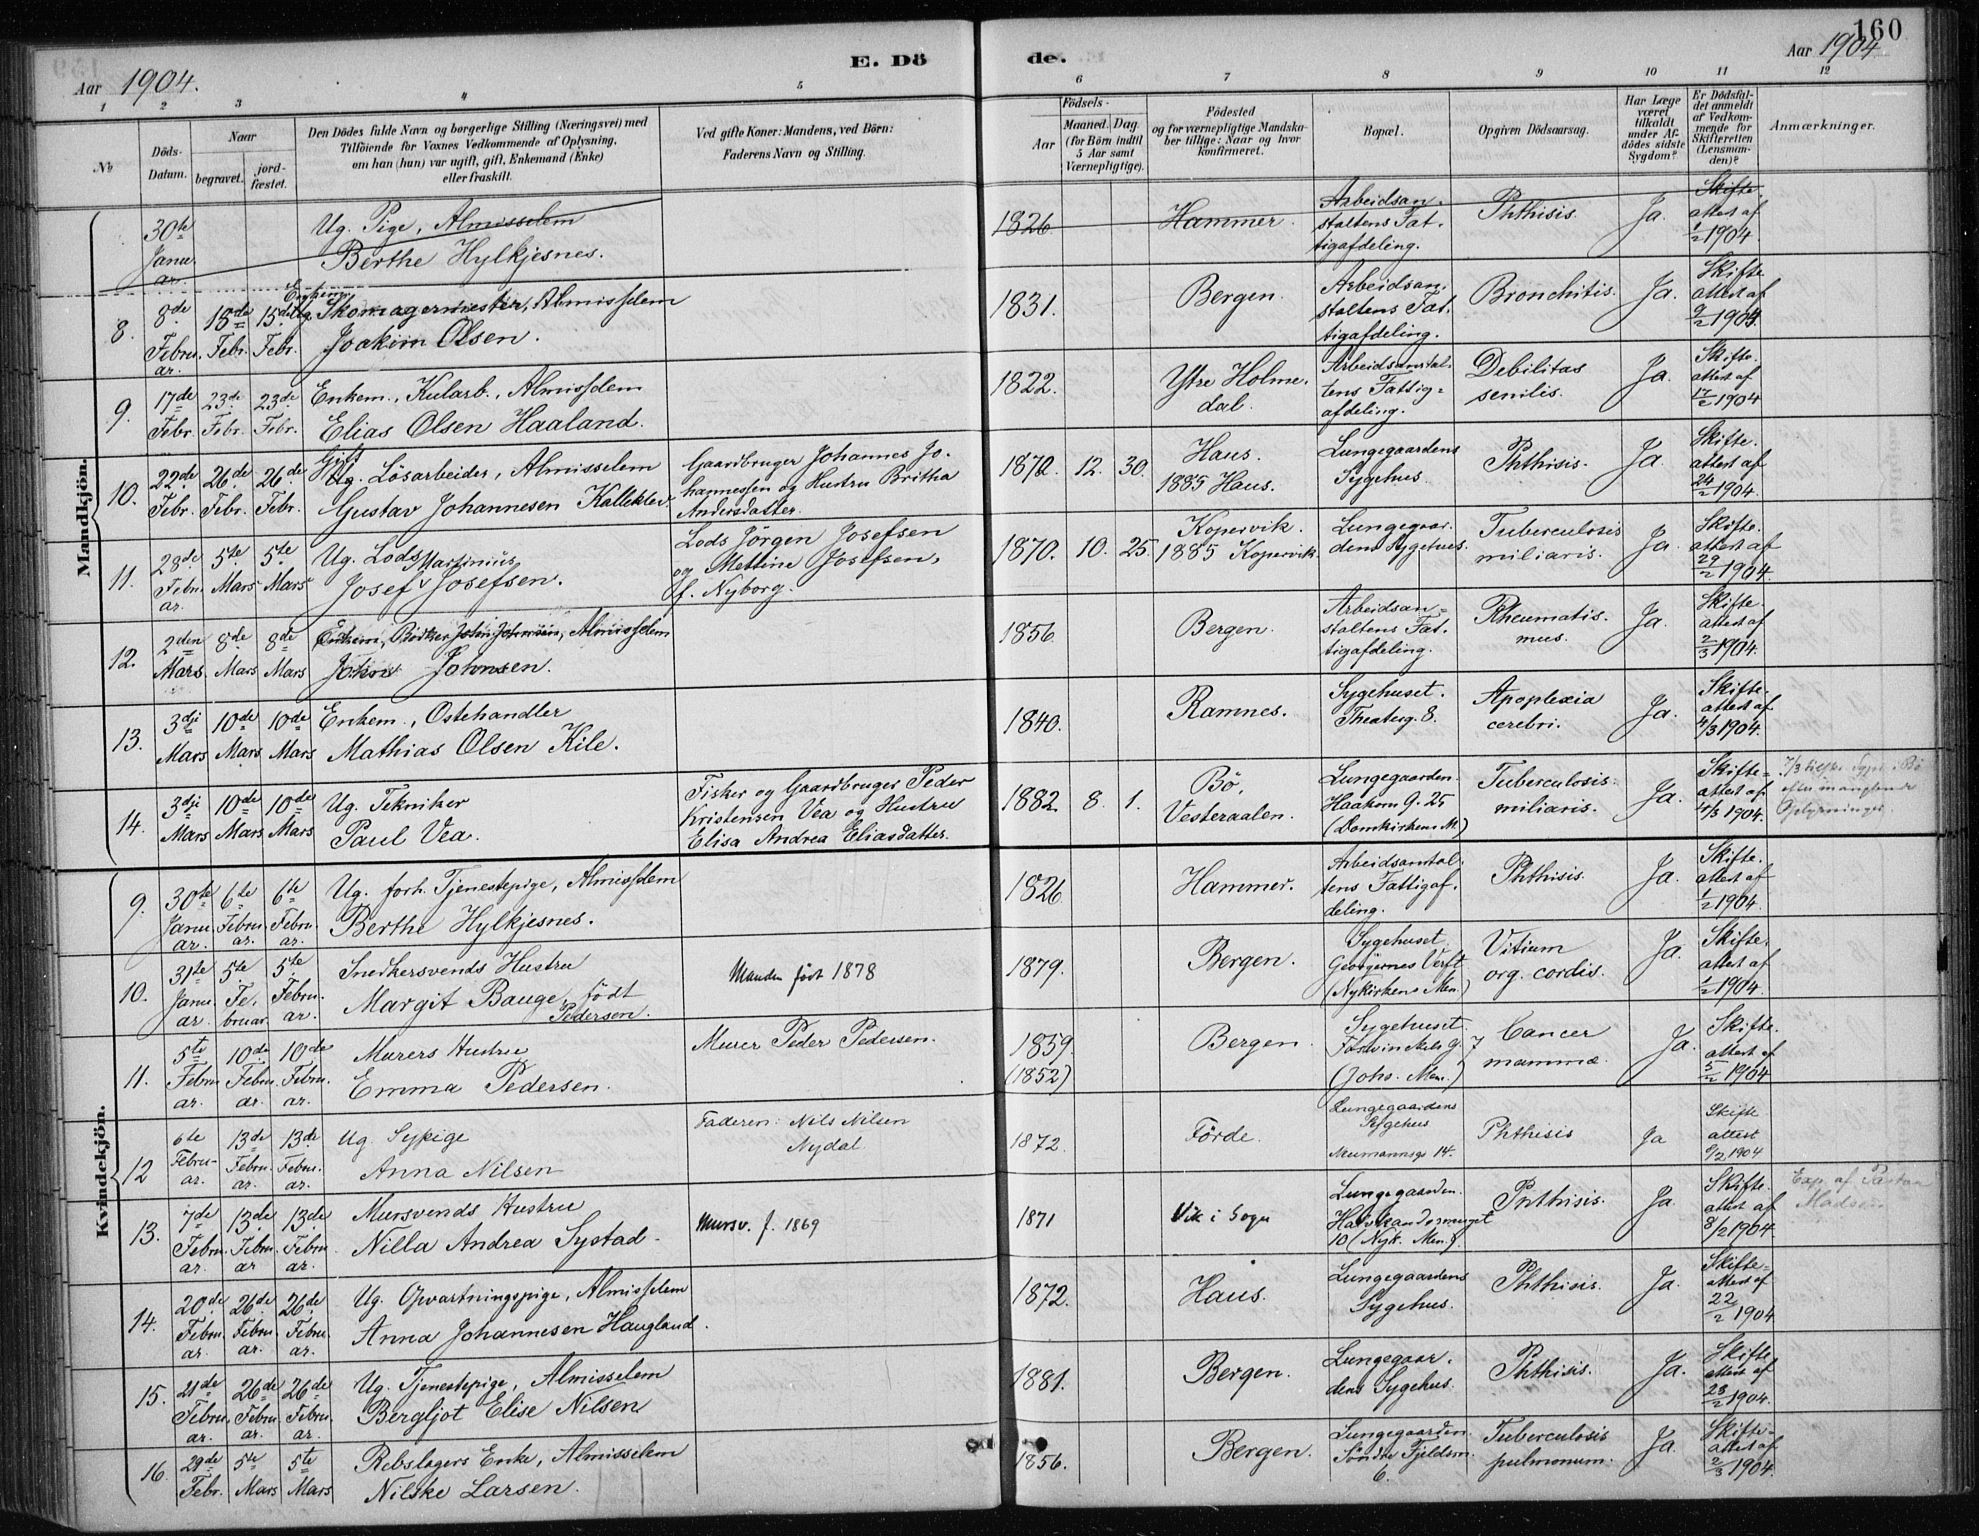 160
Aar 1904.
E. Dö
de.
Aar 1904
1 2 3 4 5 6 7 8 9 10 11 12
No
Döds-Datum.
Naar
begravet.
jord-fæstet.
Den Dödes fulde Navn og borgerlige Stilling (Næringsvei) med
Tilföiende for Voxnes Vedkommende af Oplysning,
om han (hun) var ugift, gift, Enkemand (Enke)
eller fraskilt.
Ved gifte Koner: Mandens, ved Börn:
Faderens Navn og Stilling.
Födsels-
Aar
Maaned. Dag.
(for Börn indtil
5 Aar samt
Værnepligtige).
Födested
og for værnepligtige Mandskaber tillige: Naar og hvor
konfirmeret.
Bopæl.
Opgiven Dödsaarsag.
Har Læge
været
tilkaldt
under Afdödes sidste
Sygdom?
Er Dödsfaldet anmeldt
af Vedkommende for
Skifteretten
(Lensmanden)?
Anmærkninger.
Mandkjön.
30te Januar. Ug. Pige, Almisselem
Berthe Hylkjesnes.
1826 Hammer. Arbeidsanstaltens Fattigafdeling. Phthisis. Ja. Skifteattest af 1/2 1904.
8. 8de Februar. 15de Febr. 15de Febr. Enkem. Skomagermester, Almisselem
Joakim Olsen.
1831. Bergen. Arbeidsanstaltens Fattigafdeling. Bronchitis. Ja. Skifteattest af 9/2 1904.
9. 17de Febr. 23de Febr. 23de Febr. Enkem., Kularb., Almisselem
Elias Olsen Haaland.
1822. Ytre Holmedal. Arbeidsanstaltens Fattigafdeling. Debilitas senilis. Ja. Skifteattest af 17/2 1904
10. 22de Febr. 26de Febr. 26de Febr. Gift Ug. Lösarbeider, Almisselem
Gustav Johannesen Kalleklev.
Gaardbruger Johannes Johannessen og Hustru Britha Andersdatter.
1870. 12. 30. Haus. 1885 Haus. Lungegaardens Sygehus. Phthisis. Ja. Skifteattest af 24/2 1904.
11. 28de Februar. 5te Mars 5te Mars Ug. Lods Martinius
Josef Josefsen.
Lods Jörgen Josefsen og Mettine Josefsen, f. Nyborg.
1870. 10. 25. Kopervik. 1885 Kopervik. Lungegaardens Sygehus. Tuberculosis miliaris. Ja. Skifteattest af 29/2 1904.
12. 2den Mars. 8de Mars 8de Mars Enkem, Bödker John Johnsen, Almisselem
Johnsen.
1856. Bergen. Arbeidsanstaltens Fattigafdeling. Rheumatismus. Ja. Skifteattest af 2/3 1904.
13. 3dje Mars 10de Mars 10de Mars Enkem., Ostehandler
Mathias Olsen Kile.
1840. Ramnes. Sygehuset. Theaterg. 8. Apoplexia cerebri. Ja. Skifteattest af 4/3 1904.
14. 3dje Mars 10de Mars 10de Mars Ug. Tekniker
Paul Vea.
Fisker og Gaardbruger Peder Kristensen Vea og Hustru Elisa Andrea Eliasdatter.
1882. 8. 1. Bö, Vesteraalen. Lungegaarden. Haakon G. 25 (Domkirkens M.) Tuberculosis miliaris. Ja. Skifteattest af 4/3 1904.
Kvindekjön.
9. 30te Januar. 6te Februar. 6te Februar. Ug. forh. Tjenestepige, Almisselem
Berthe Hylkjesnes.
1826 Hammer. Arbeidsanstaltens Fattigafdeling. Phthisis. Ja. Skifteattest af 1/2 1904.
10. 31te Januar. 5te Februar. 5te Februar. Snedkersvends Hustru
Margit Bauge, född
Pedersen.
Manden född 1878
1879. Bergen. Sygehuset. Georgernes Verft (Nykirkens Men.) Vitium org. cordis. Ja. Skifteattest af 1/2 1904.
11. 5te Februar. 10de Februar. 10de Februar. Murers Hustru
Emma Pedersen.
Murer Peder Pedersen.
1859. (1852) Bergen. Sygehuset. (Johs. Men.) Cancer mammæ. Ja. Skifteattest af 5/2 1904
12 6te Februar. 13de Februar. 13de Februar. Ug. Sypige
Anna Nilsen
Faderen: Nils Nilsen Nydal
1872. Förde. Lungegaardens Sygehus Neumannsg. 14. Phthisis Ja Skifteattest 9/2 1904
13. 7de Februar. 13de Februar 13de Februar. Mursvends Hustru
Nilla Andrea Systad.
Mursv. f. 1869
1871 Vik i Sogn Lungegaarden. 10 (Nyk. Men.) Phthisis. Ja. Skifteattest af 8/2 1904. Exp. af Pastor Madsen
14. 20de Februar. 26de Februar. 26de Februar. Ug. Opvartningspige, Almisselem
Anna Johannesen Haugland.
1872. Haus. Lungegaardens Sygehus. Phthisis. Ja. Skifteattest af 22/2 1904
15. 21de Februar. 26de Februar. 26de Februar. Ug. Tjenestepige, Almisselem
Bergljot Elise Nilsen
1881. Bergen. Lungegaardens Sygehus. Phthisis. Ja. Skifteattest af 23/2 1904.
16. 29de Febr. 5te Mars 5te Mars Rebslagers Enke, Almisselem
Nilske Larsen.
1856. Bergen. Lungegaarden. Söndre Fjeldsm. 6. Tuberculosis pulmonum. Ja. Skifteattest af 2/3 1904.